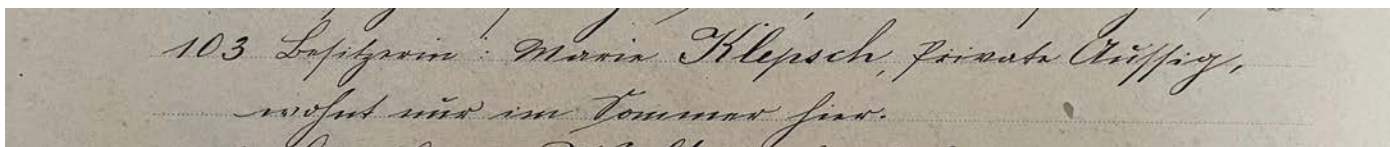 103 Besitzerin: Marie Klepsch, Private Aussig,
wohnt nur im Sommer hier.